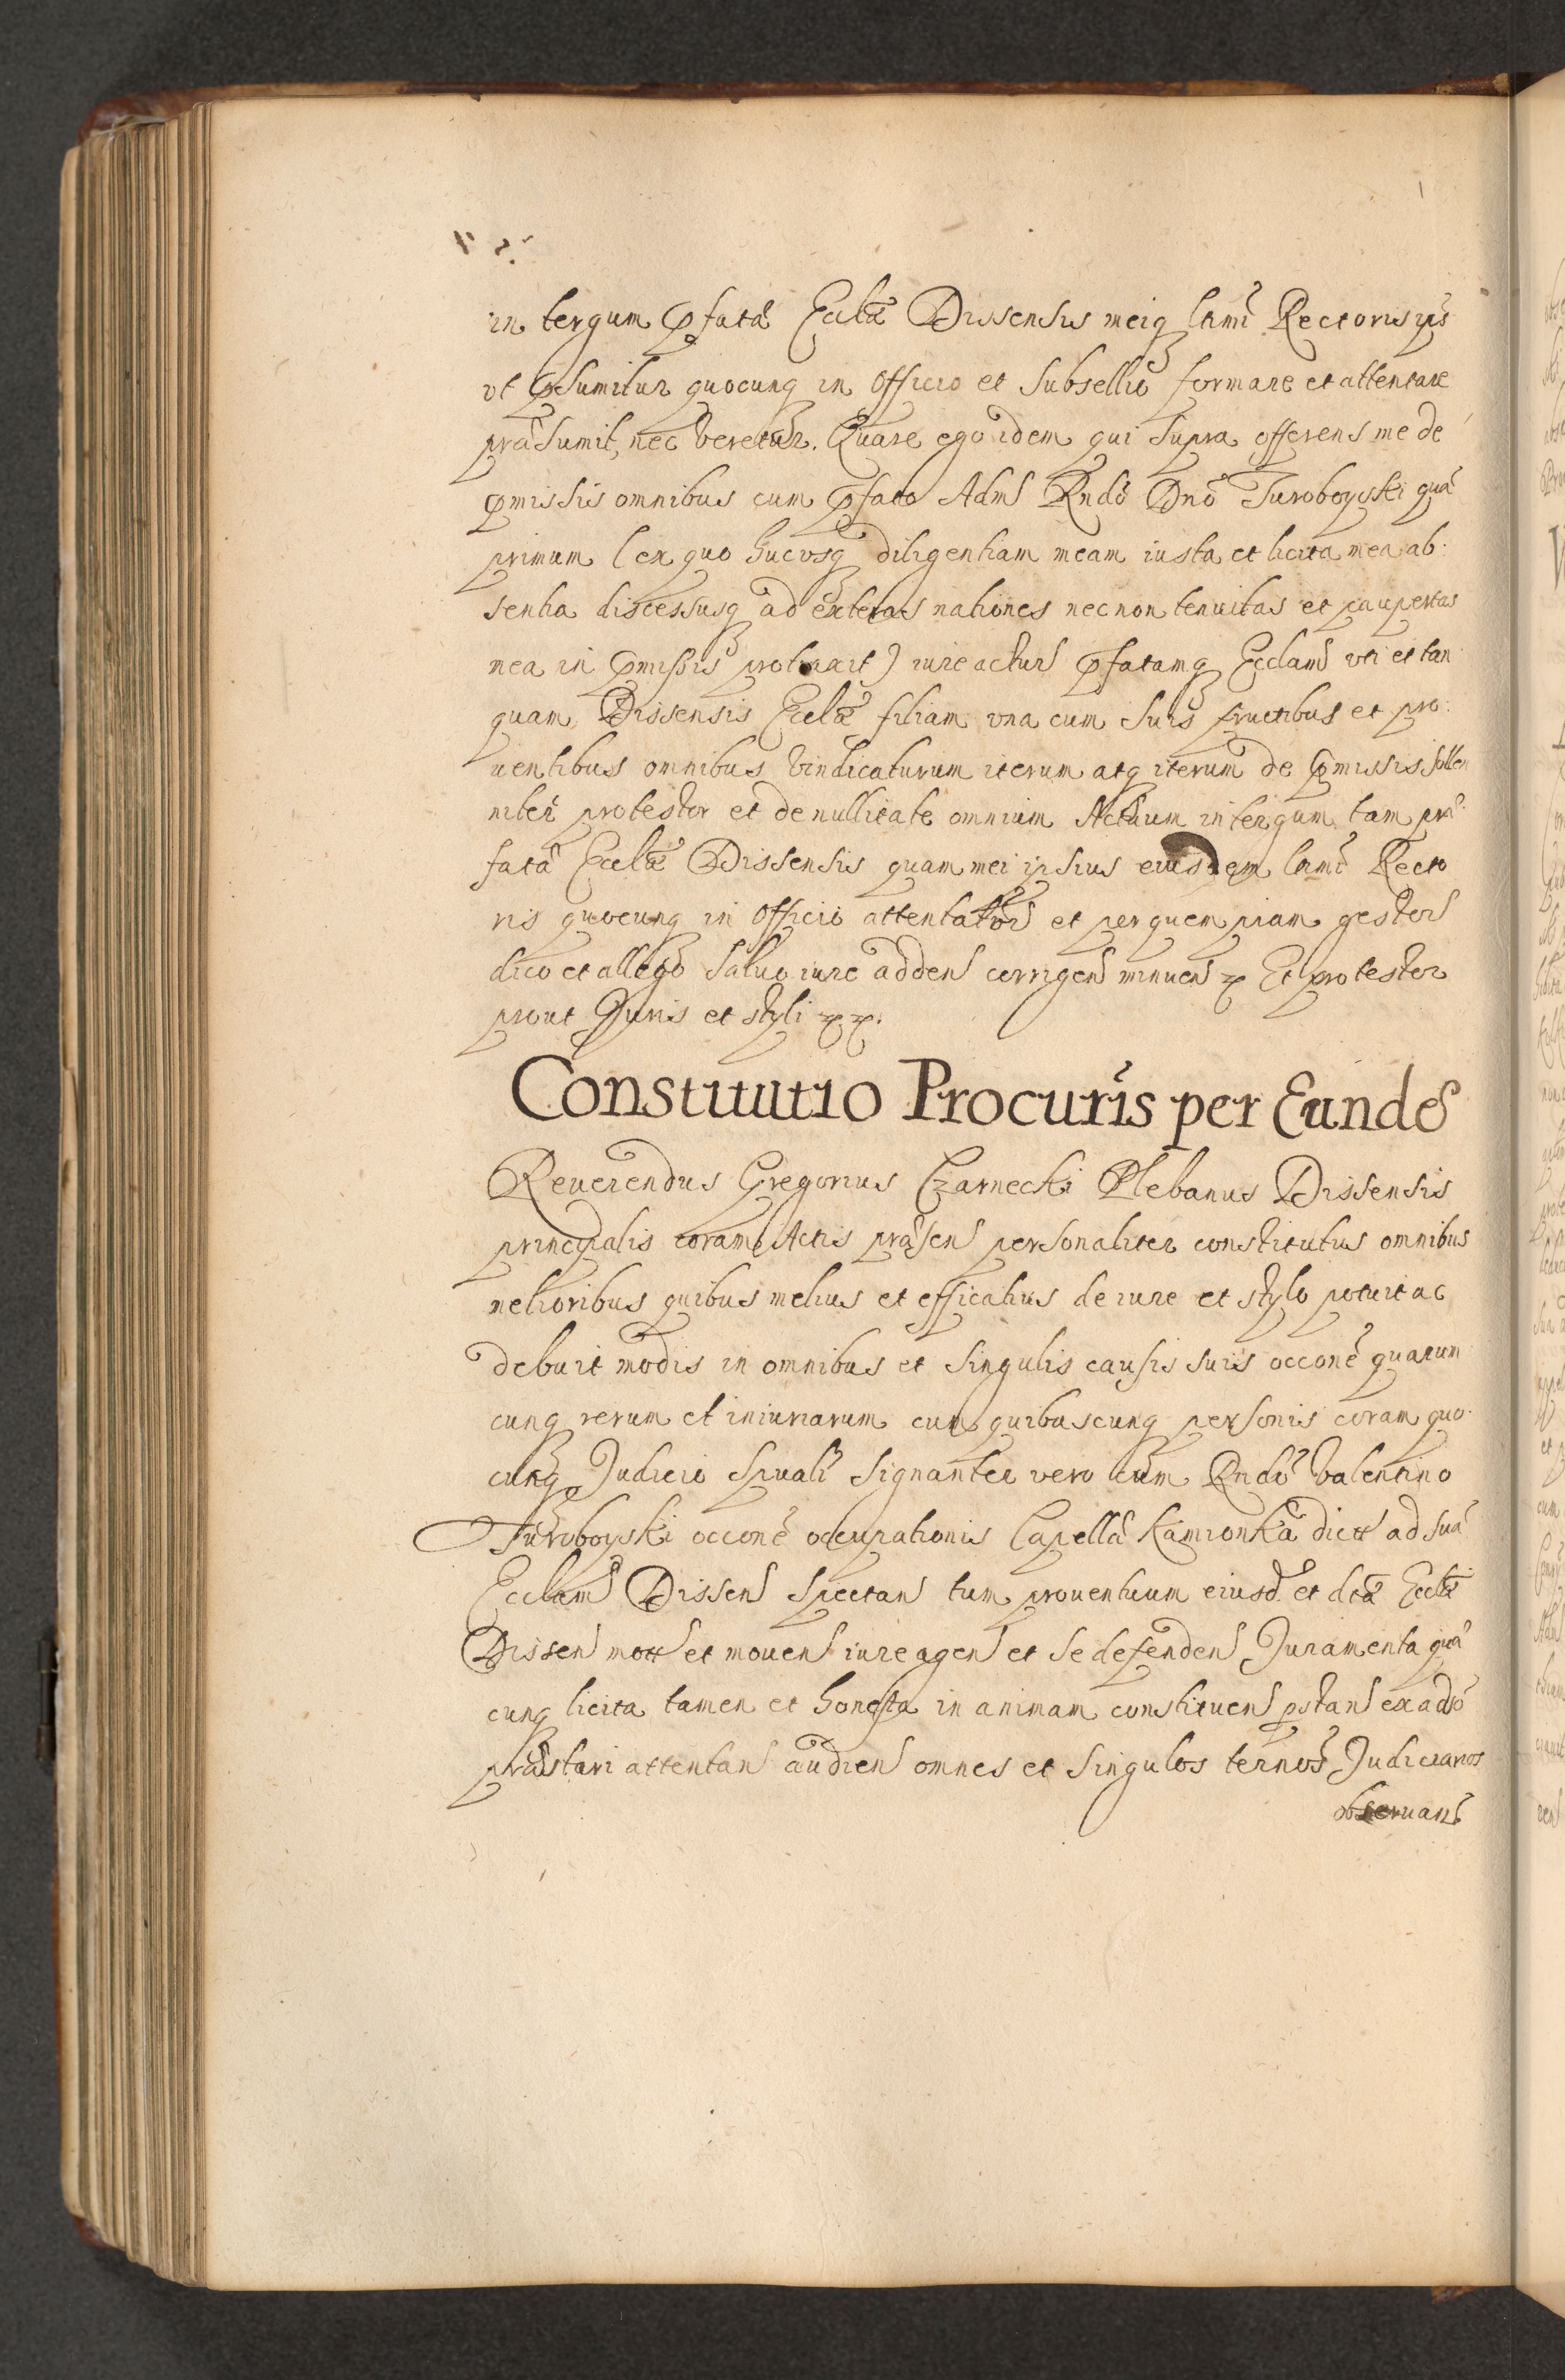 in tergum p̃fatæ Eccłæ Dissensis meiq̃ ltimi Rectoris ips̃
vt p̃sumitur quocunq̃ in Officio et Subsellio formare et attentare
præsumit, nec veretur. Quare ego idem qui supra offerens me de
p̃missis omnibus cum p̃fato Adm̃ Rndo Dno Turoboyski quã
primum (ex quo hucvsq̃ diligentiam meam iusta et licita mea ab:
sentia discessusq̃ ad exteras nationes necnon tenuitas et paupertas
mea in p̃missis protraxit) iure acturũ p̃fatamq̃ Ecclam̃ vti et tan
quam Dissensis Eccłæ filiam vna cum suis fructibus et pro:
uentibus omnibus vindicaturum iterum atq̃ iterum de p̃missis sollen
niter protestor et de nullitate omnium Actuum in tergum tam præ:
fatæ Eccłæ Dissensis quam mei ipsius eiusdem ltimi Recto
ris quocunq̃ in Officio attentator̃ et per quempiam gestor̃
dico et allego Saluo iure adden̄ corrigen̄ minuen̄ ꝛ Et protestor
prout Juris et styli ꝛꝛ.
Constitutio Procuris̃ per Eundẽ
Reuerendus Gregorius Czarnecki Plebanus Dissensis
principalis coram Actis præsen̄ personaliter constitutus omnibus
melioribus quibus melius et efficatius de iure et stylo potuit ac
debuit modis in omnibus et singulis causis suis occone quarum
cunq̃ rerum et iniuriarum cum quibuscunq̃ personis coram quo:
cunq̃ Judicio Spuali signanter vero cum Rndo Valentino
Turoboyski occone occupationis Capellæ Kamionka dict̃ ad suã
Ecclam̃ Dissen̄ spectan̄ tum prouentuum eiusd et dctæ Eccłæ
Dissen̄ mot̃ et mouen̄ iure agen̄ et se defenden̄ Juramenta quæ
cunq̃ licita tamen et honesta in animam constituen̄ p̃stan̄ ex aduõ
præstari attentan̄ audien̄ omnes et singulos ternos̃ Judiciarios
obseruan̄